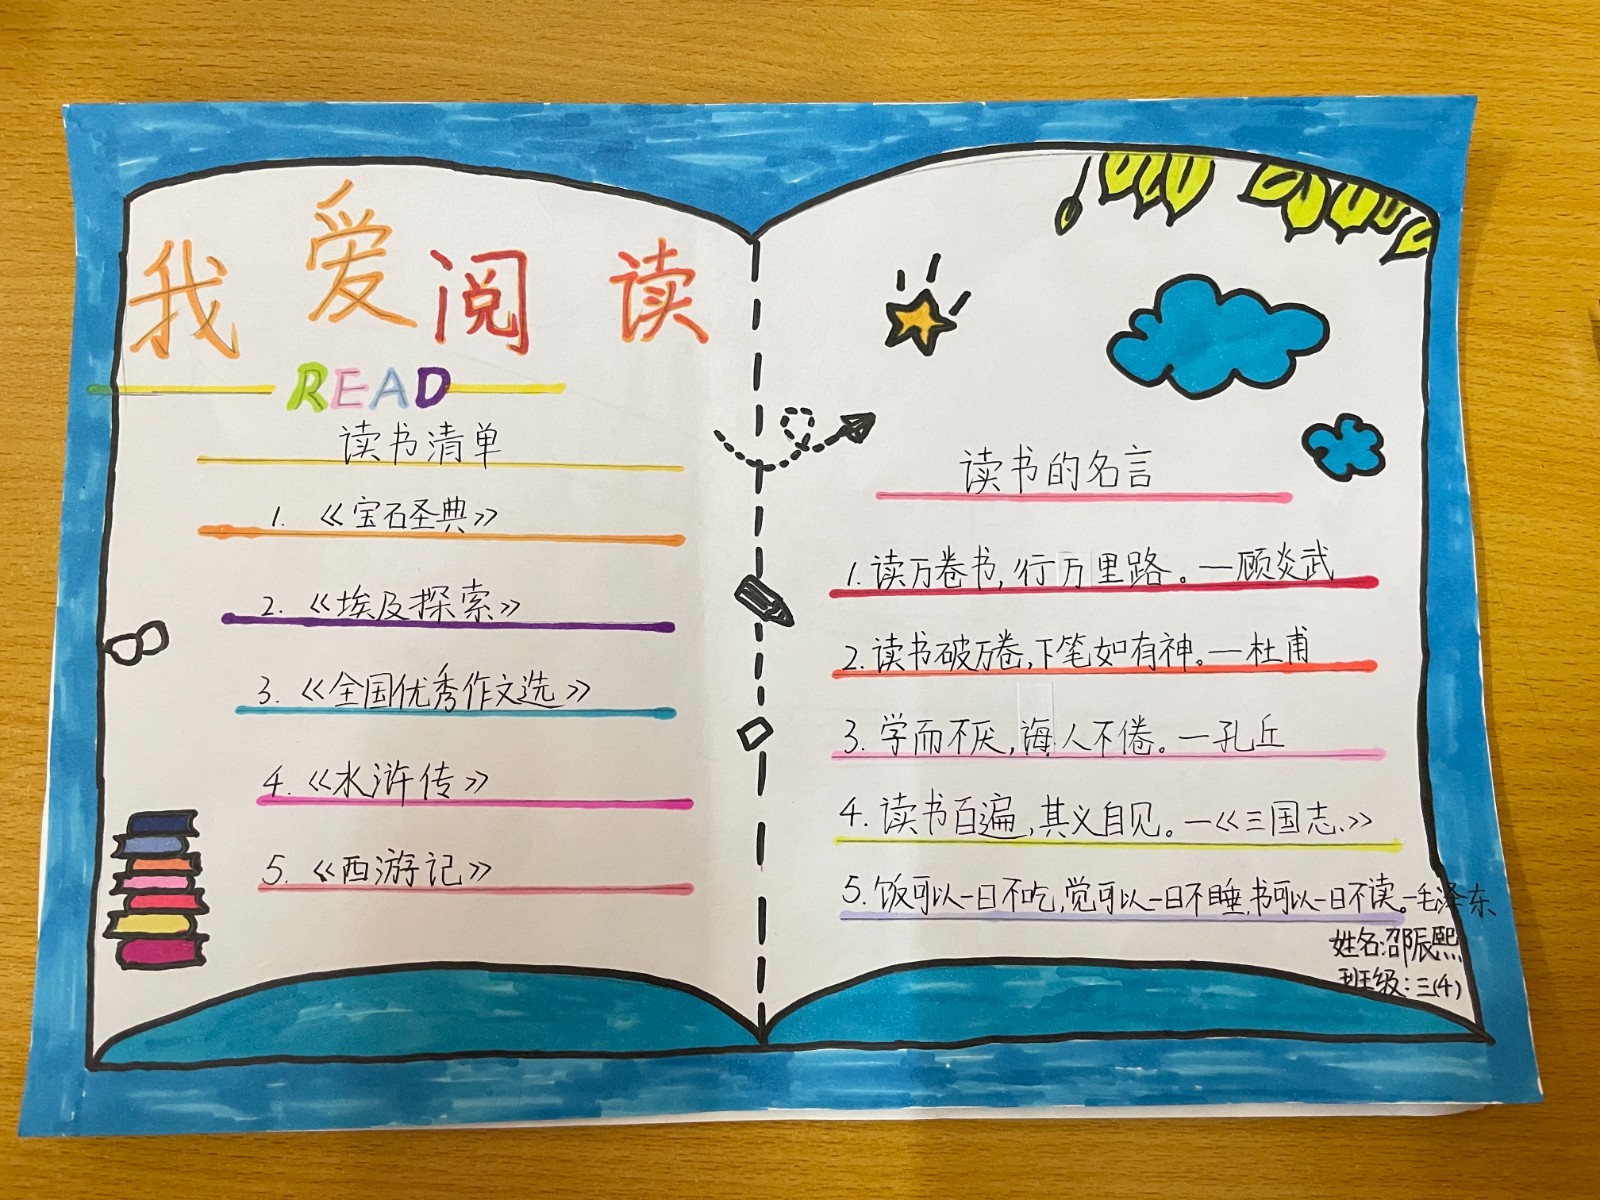 我爱阅读
READ
读书清单
1. 《宝石圣典》
2. 《埃及探索》
3. 《全国优秀作文选》
4. 《水浒传》
5. 《西游记》
读书的名言
1. 读万卷书,行万里路。—顾炎武
2. 读书破万卷,下笔如有神。—杜甫
3. 学而不厌,诲人不倦。—孔丘
4. 读书百遍,其义自见。—《三国志》
5. 饭可以一日不吃,觉可以一日不睡,书可以一日不读。—毛泽东
姓名:邵辰熙
班级:三(4)